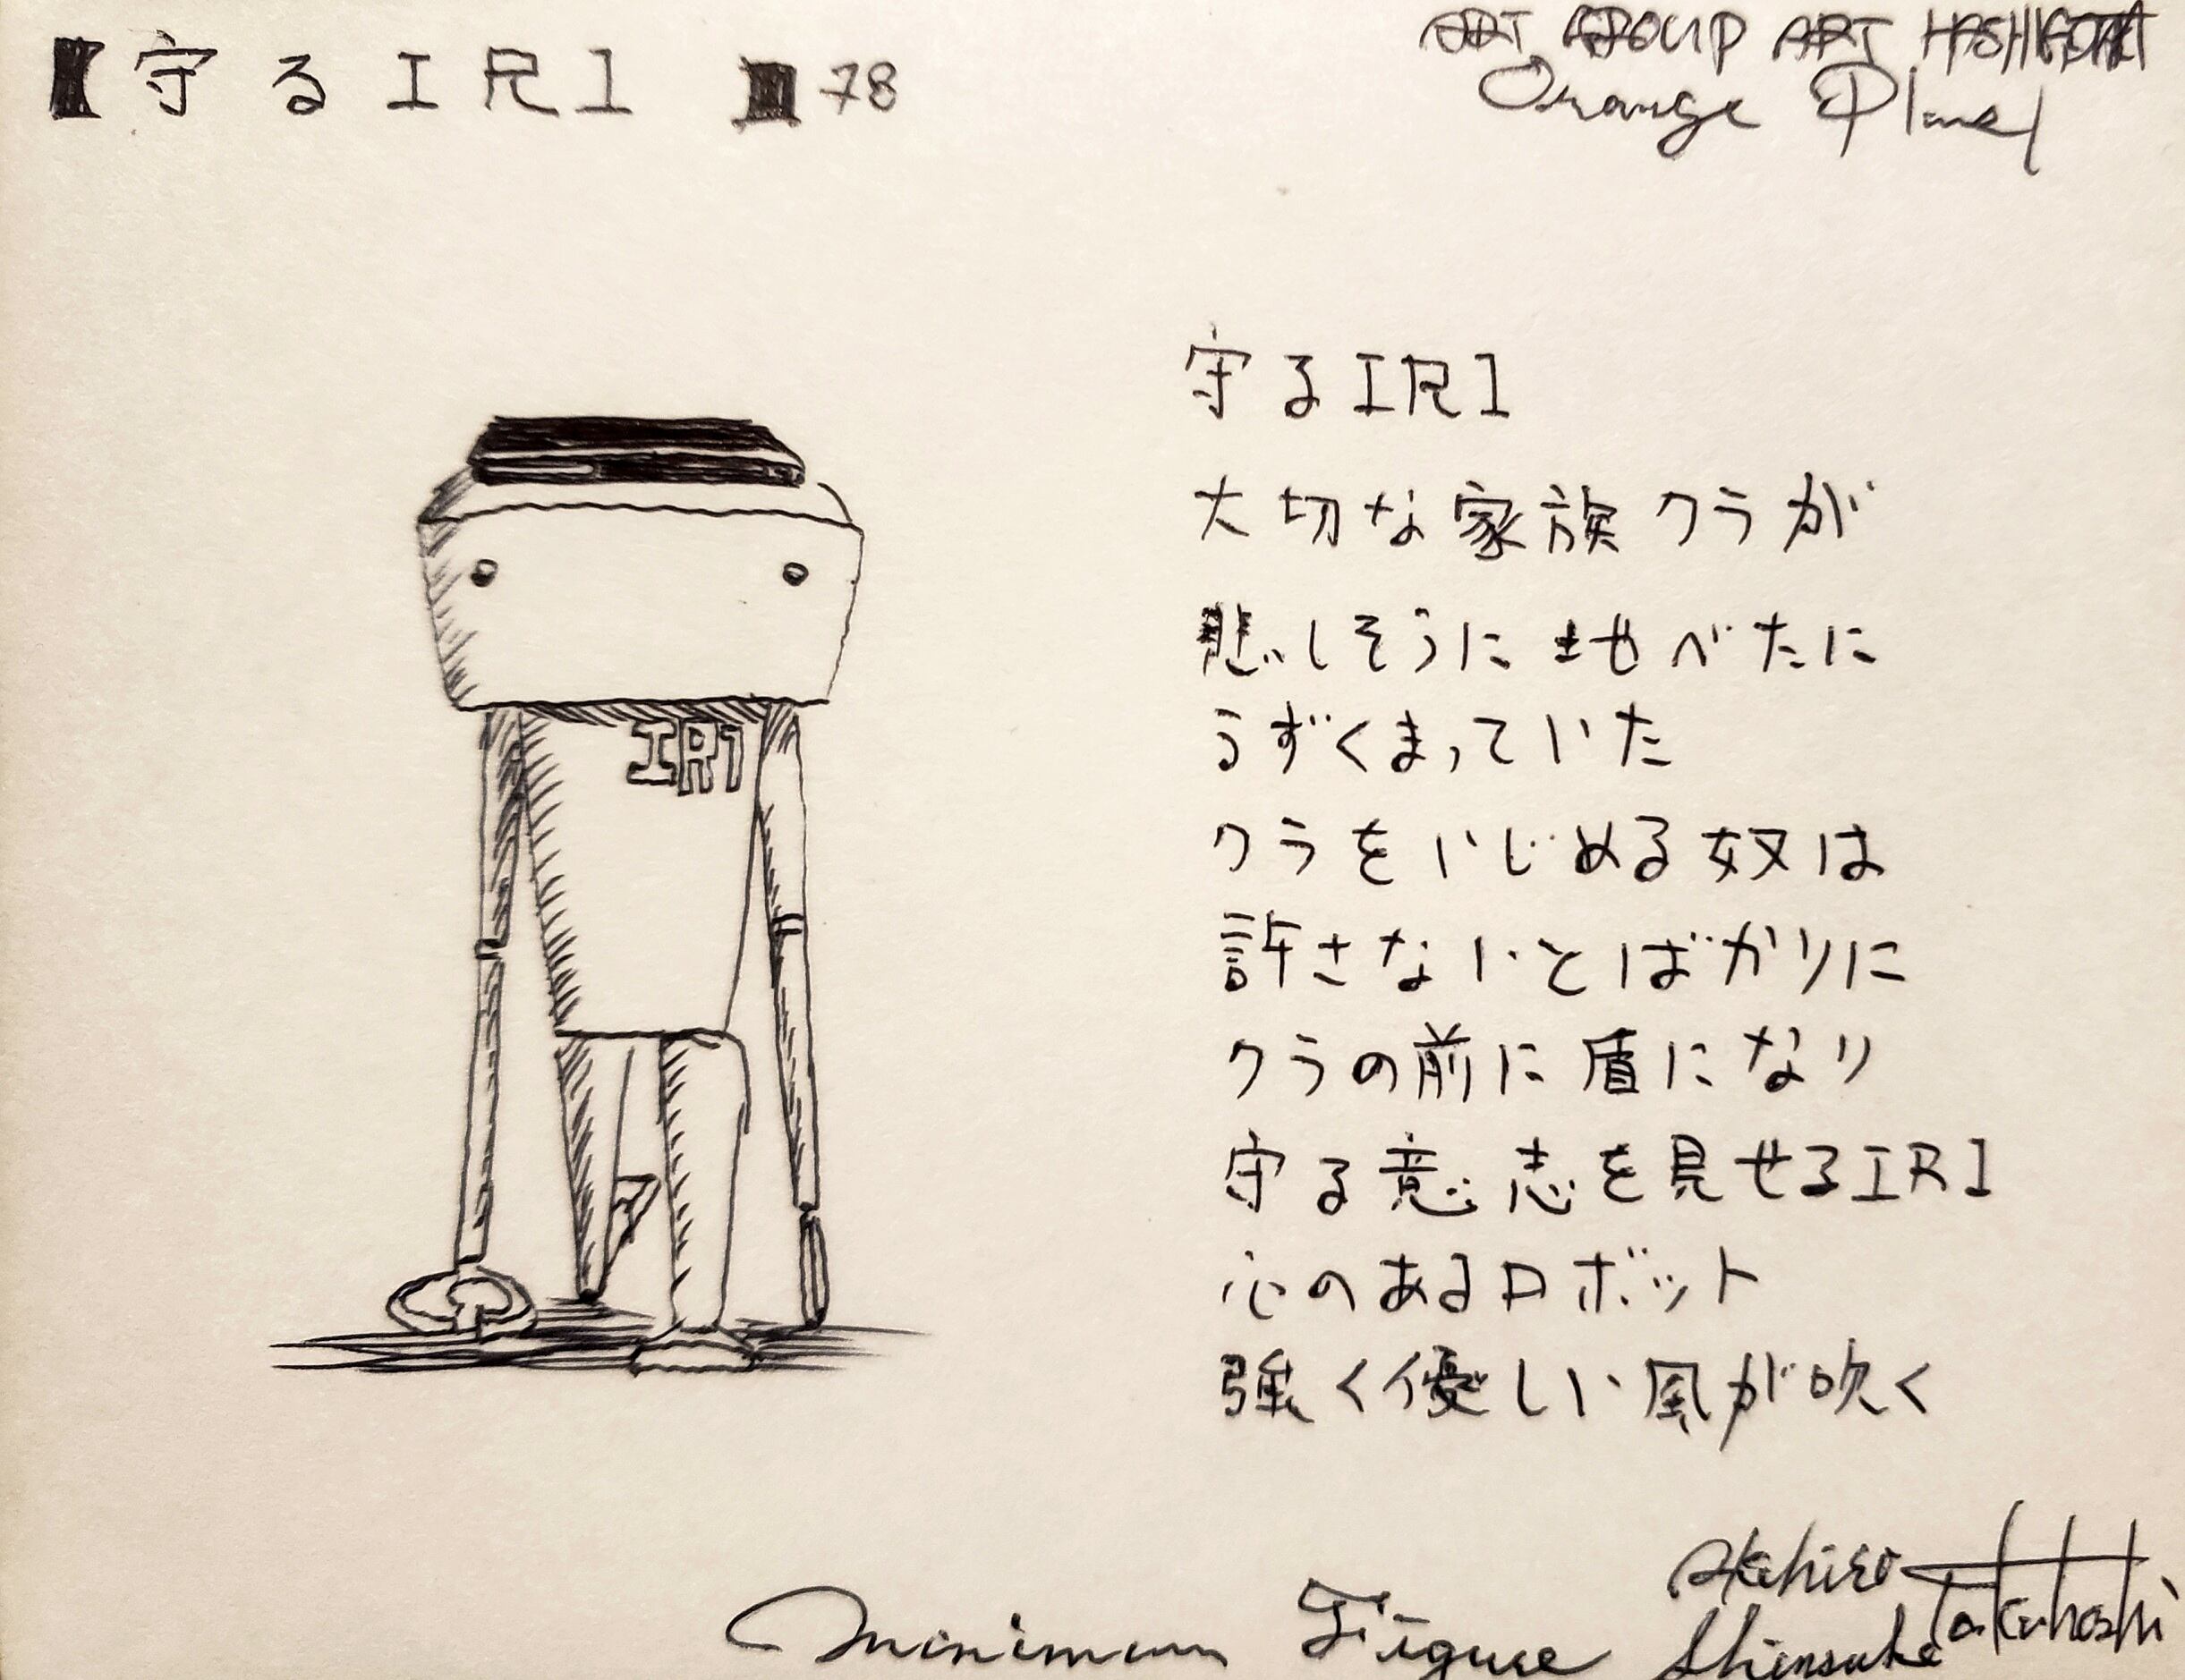 守るIR1 78
ART GROUP ART HASHIGOTAI
Orange Planet
守るIR1
大切な家族クラが
悲しそうに地べたに
うずくまっていた
クラをいじめる奴は
許さないとばかりに
クラの前に盾になり
守る意志を見せるIR1
心のあるロボット
強く優しい風が吹く
IR1
Akihiro
Minimum Figure Shinsuke Takahashi